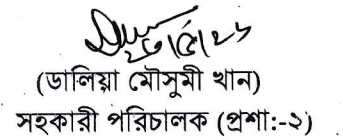 ২৬/৫/২৬
(ডালিয়া মৌসুমী খান)
সহকারী পরিচালক (প্রশা:-২)